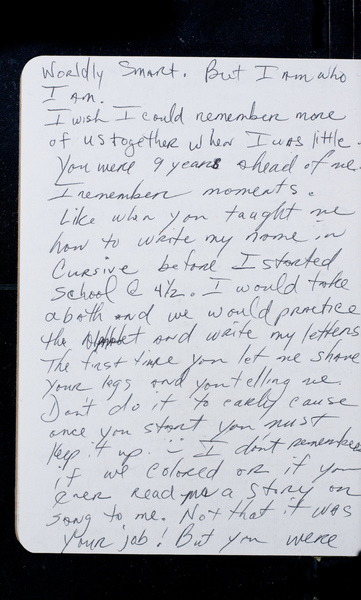 Worldly Smart. But I am who
I am.
I wish I could remember more
of us together when I was little.
You were 9 years ahead of me.
I remember moments.
Like when you taught me
how to write my name in
Cursive before I started
School @ 4½. I would take
a bath and we would practice
the Alphabet and write my letters
The first time you let me shave
your legs and you telling me.
Don't do it to early cause
once you start you must
keep it up. I don't remember
if we colored or if you
ever read me a story or
song to me. Not that it was
your job! But you were